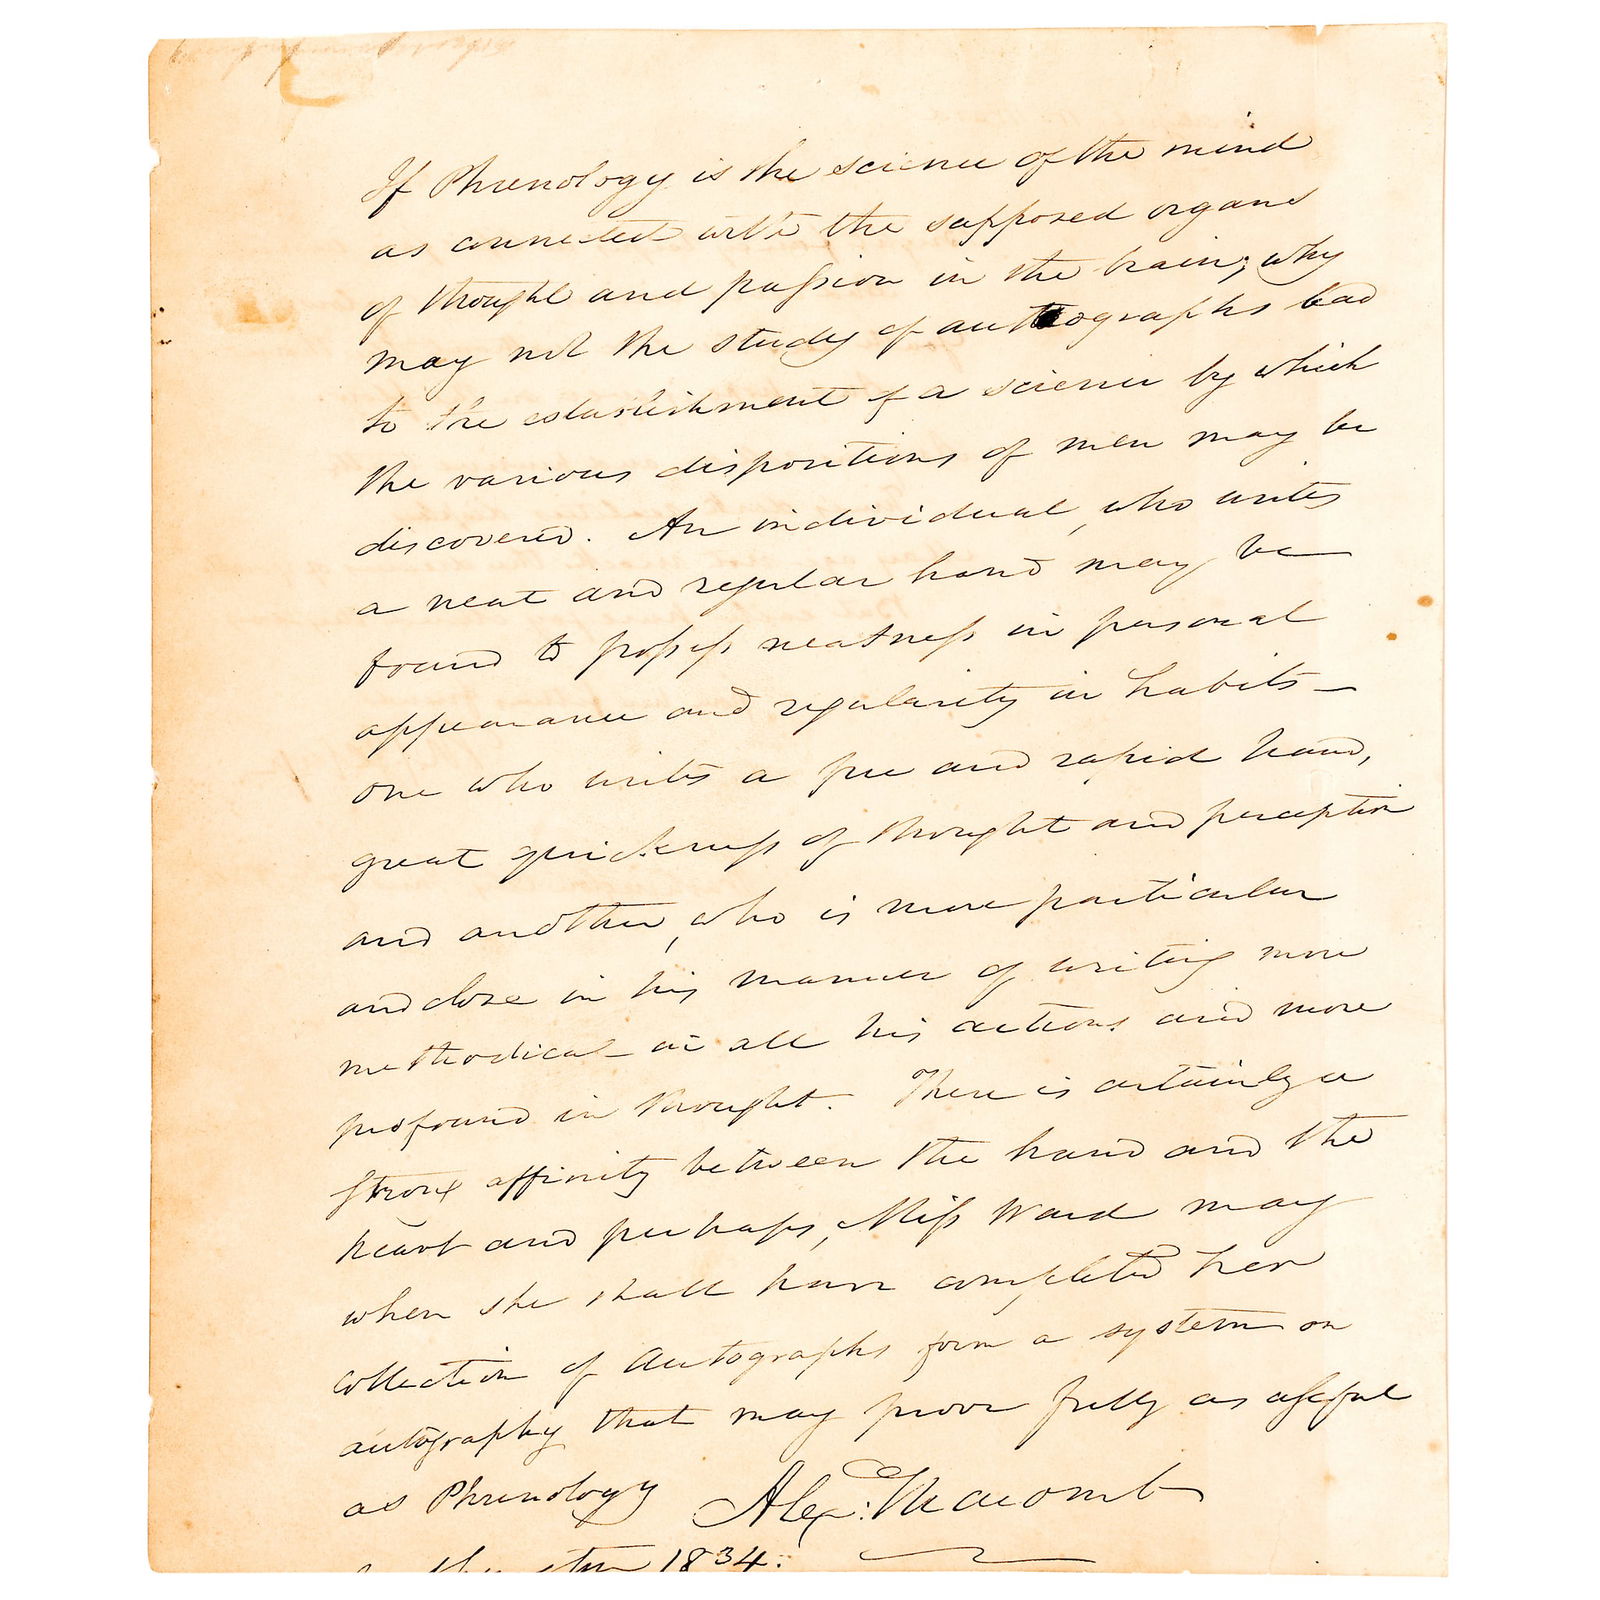 If Phrenology is the science of the mind
as connected with the supposed organs
of thought and passion in the brain; why
may not the study of autographs lead
to the establishment of a science by which
the various dispositions of men may be
discovered. An individual, who writes
a neat and regular hand may be
found to possess neatness in personal
appearance and regularity in habits —
one who writes a free and rapid hand,
great quickness of thought and perception
and another, who is more particular
and close in his manner of writing more
methodical in all his actions and more
profound in thought. There is certainly a
strong affinity between the hand and the
heart and perhaps, Miss Ward may
when she shall have completed her
collection of Autographs form a system on
autography that may prove fully as useful
as Phrenology Alex: Macomb
1834.